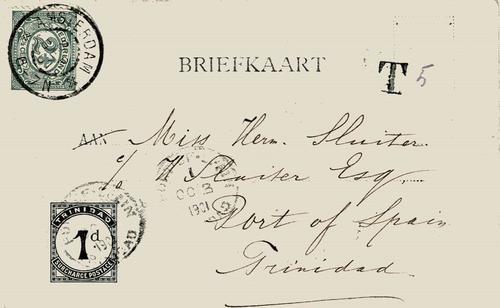 AMSTERDAM
2½
BRIEFKAART
T 5
AAN Miss Herm. Sluiter
c/o H Sluiter Esq.
Port of Spain
Trinidad
1901
TRINIDAD
1d
SURCHARGE POSTAGE